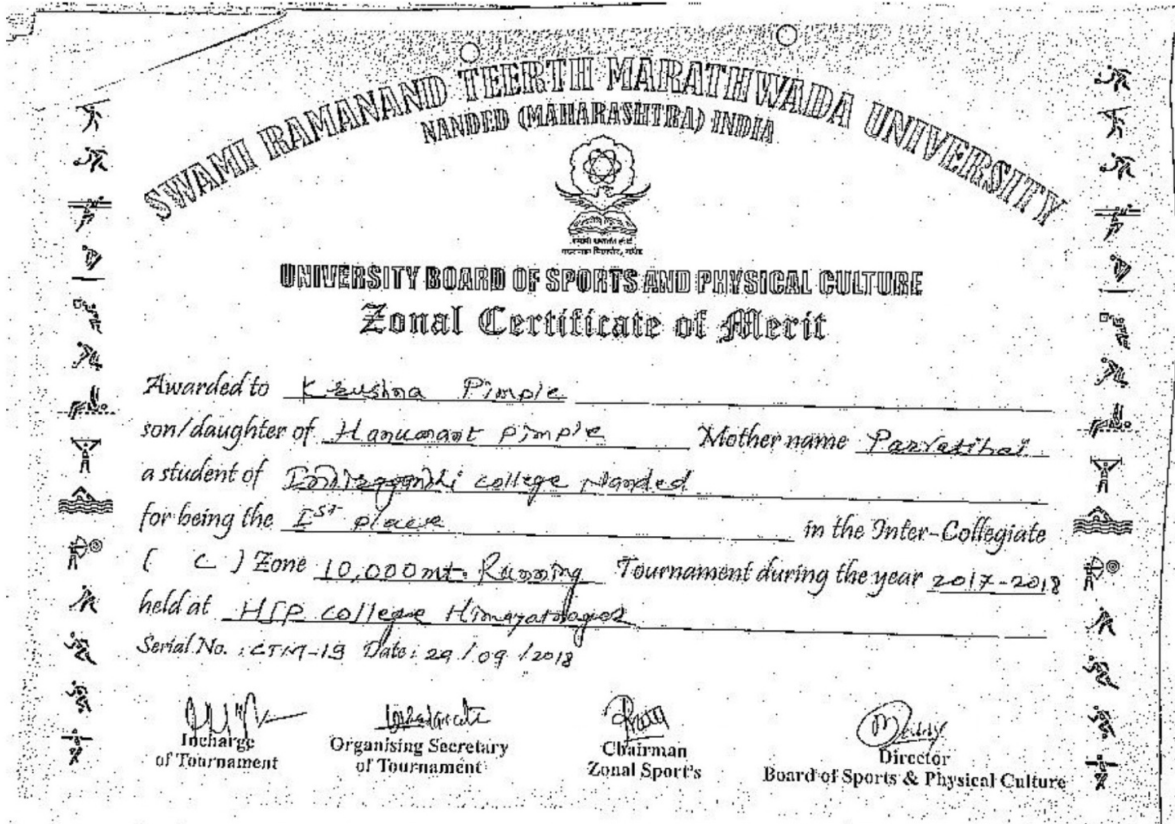 SWAMI RAMANAND TEERTH MARATHWADA UNIVERSITY
NANDED (MAHARASHTRA) INDIA
UNIVERSITY BOARD OF SPORTS AND PHYSICAL CULTURE
Zonal Certificate of Merit
Awarded to Krushna Pimple
son/daughter of Hanumant Pimple Mother name Parvatibai
a student of Indiragandhi college Nanded
for being the Ist place in the Inter-Collegiate
( C ) Zone 10,000mt. Running Tournament during the year 2017-2018
held at HJP college Himayatnagar
Serial No. : CTM-19 Date: 29/09/2018
Incharge Organising Secretary Chairman Director
of Tournament of Tournament Zonal Sport's Board of Sports & Physical Culture